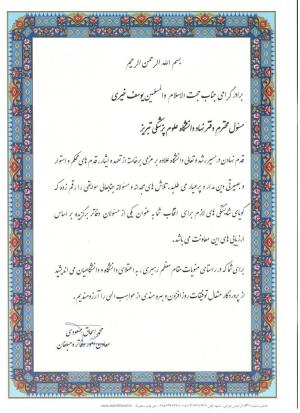 بسم الله الرحمن الرحیم
برادر گرامی جناب حجت الاسلام والمسلمین یوسف خیری
مسئول محترم دفتر نهاد دانشگاه علوم پزشکی تبریز
قدم نهادن در مسیر رشد و تعالی دانشگاه علاوه بر عزمی برخاسته از تعهد و ایثار، قدم‌های محکم و استوار
و بصیرتی دین مدار و پرعیار می طلبد، تلاش‌های مجدانه و مسئولانه جنابعالی سوابقی را رقم زده که
گویای شایستگی های لازم برای انتخاب شما به عنوان یکی از مسئولان دفاتر برگزیده بر اساس
ارزیابی های این معاونت می باشد.
برای شما که در راستای منویات مقام معظم رهبری، به اعتلای دانشگاه و دانشگاهیان می اندیشید
از پروردگار متعال توفیقات روزافزون و بهره مندی از مواهب الهی را آرزومندیم.
محمد اسحاق مسعودی
معاون امور دفاتر و مبلغان